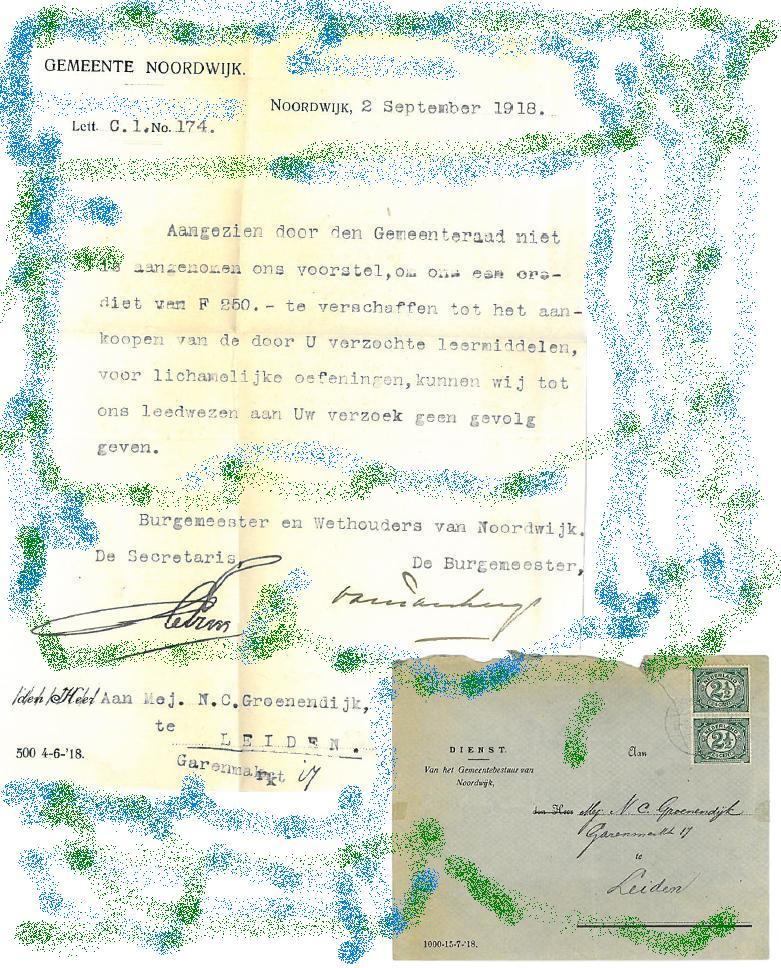 GEMEENTE NOORDWIJK.
NOORDWIJK, 2 September 1918.
Lett. C. 1. No. 174.
Aangezien door den Gemeenteraad niet
is aangenomen ons voorstel, om ons een cre-
diet van F 250.- te verschaffen tot het aan-
koopen van de door U verzochte leermiddelen,
voor lichamelijke oefeningen, kunnen wij tot
ons leedwezen aan Uw verzoek geen gevolg
geven.
Burgemeester en Wethouders van Noordwijk.
De Secretaris,
De Burgemeester,
/den/Heer Aan Mej. N.C.Groenendijk,
te
LEIDEN.
Garenmarkt 17
500 4-6-'18.
NEDERLAND
2½
CENT
NEDERLAND
2½
CENT
DIENST.
Van het Gemeentebestuur van
Noordwijk,
Aan
den Heer Mej. N. C. Groenendijk
Garenmarkt 17
te
Leiden
1000-15-7-'18.